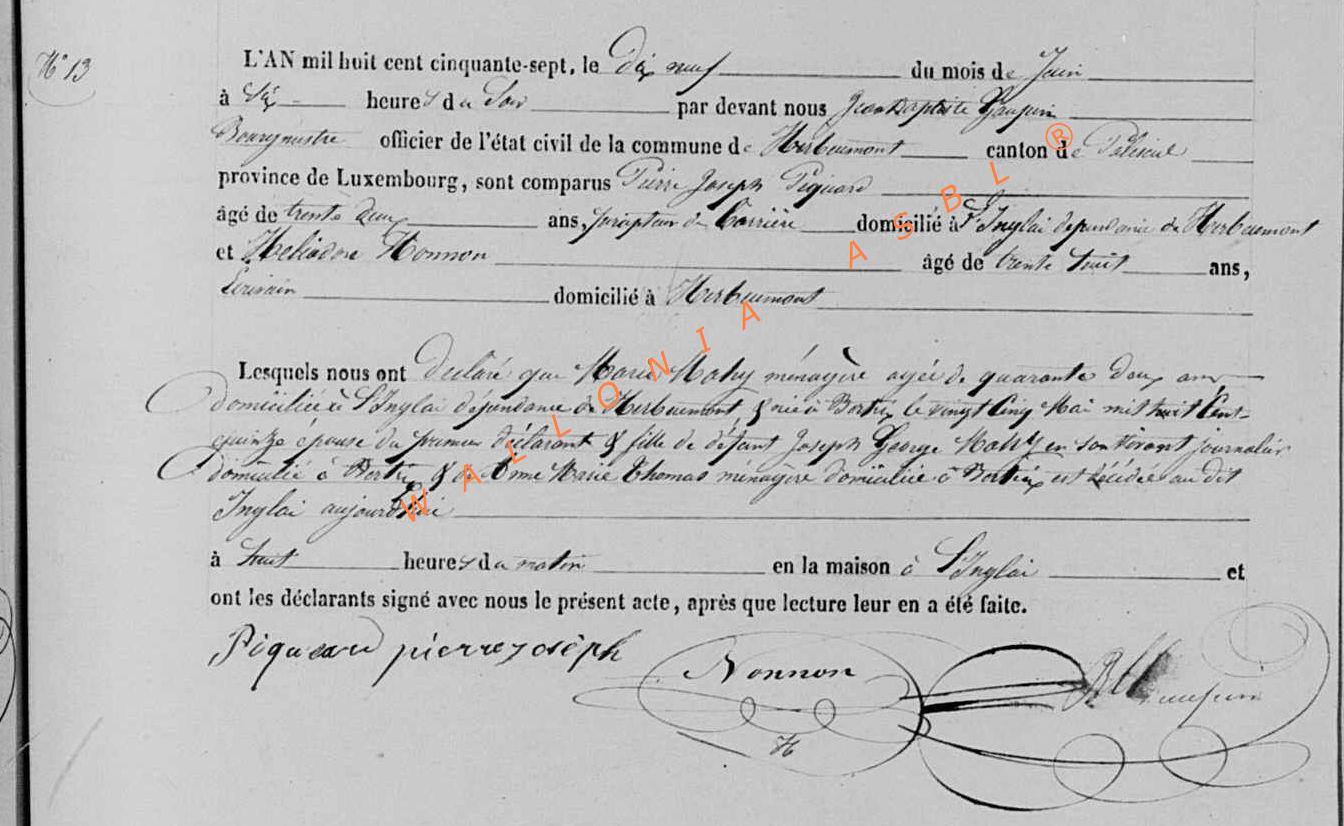 N° 13
L'AN mil huit cent cinquante-sept, le Dix neuf du mois de Juin
à Six heures du Soir par devant nous Jean Baptiste
Bourgmestre officier de l'état civil de la commune de Herbeumont canton de Paliseul
province de Luxembourg, sont comparus Pierre Joseph Piquard
âgé de trente deux ans, de Carrière domicilié à L'Inglai dépendance de Herbeumont
et Héliodore Nonnon âgé de trente huit ans,
Ecrivain domicilié à Herbeumont
Lesquels nous ont Déclaré que Marie Mahy ménagère agée de quarante deux ans
domiciliée à L'Inglai dépendance de Herbeumont & née à Bertrix le vingt Cinq Mai mil huit Cent
quinze épouse du premier déclarant & fille de défunt Joseph George Mahy en son vivant journalier
domicilié à Bertrix & de Marie Thomas ménagère domiciliée à Bertrix est décédée au dit
Inglai aujourd'hui
à huit heures du matin en la maison à L'Inglai et
ont les déclarants signé avec nous le présent acte, après que lecture leur en a été faite.
Piqueard pierre joseph Nonnon
H
WALLONIA ASBL ®